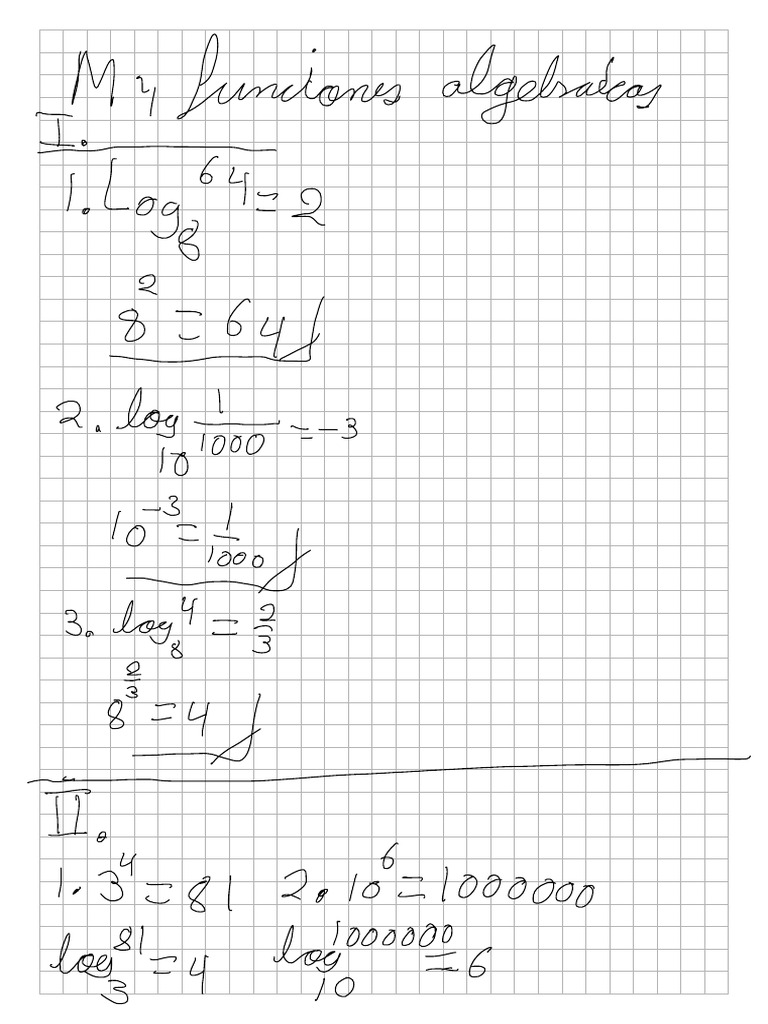 M4 funciones algebraicas
I.
1. Log₈ 64 = 2
8² = 64
2. log₁₀ 1/1000 = -3
10⁻³ = 1/1000
3. log₈ 4 = 2/3
8^(2/3) = 4
II.
1. 3⁴ = 81 2. 10⁶ = 1000000
log₃ 81 = 4 log₁₀ 1000000 = 6